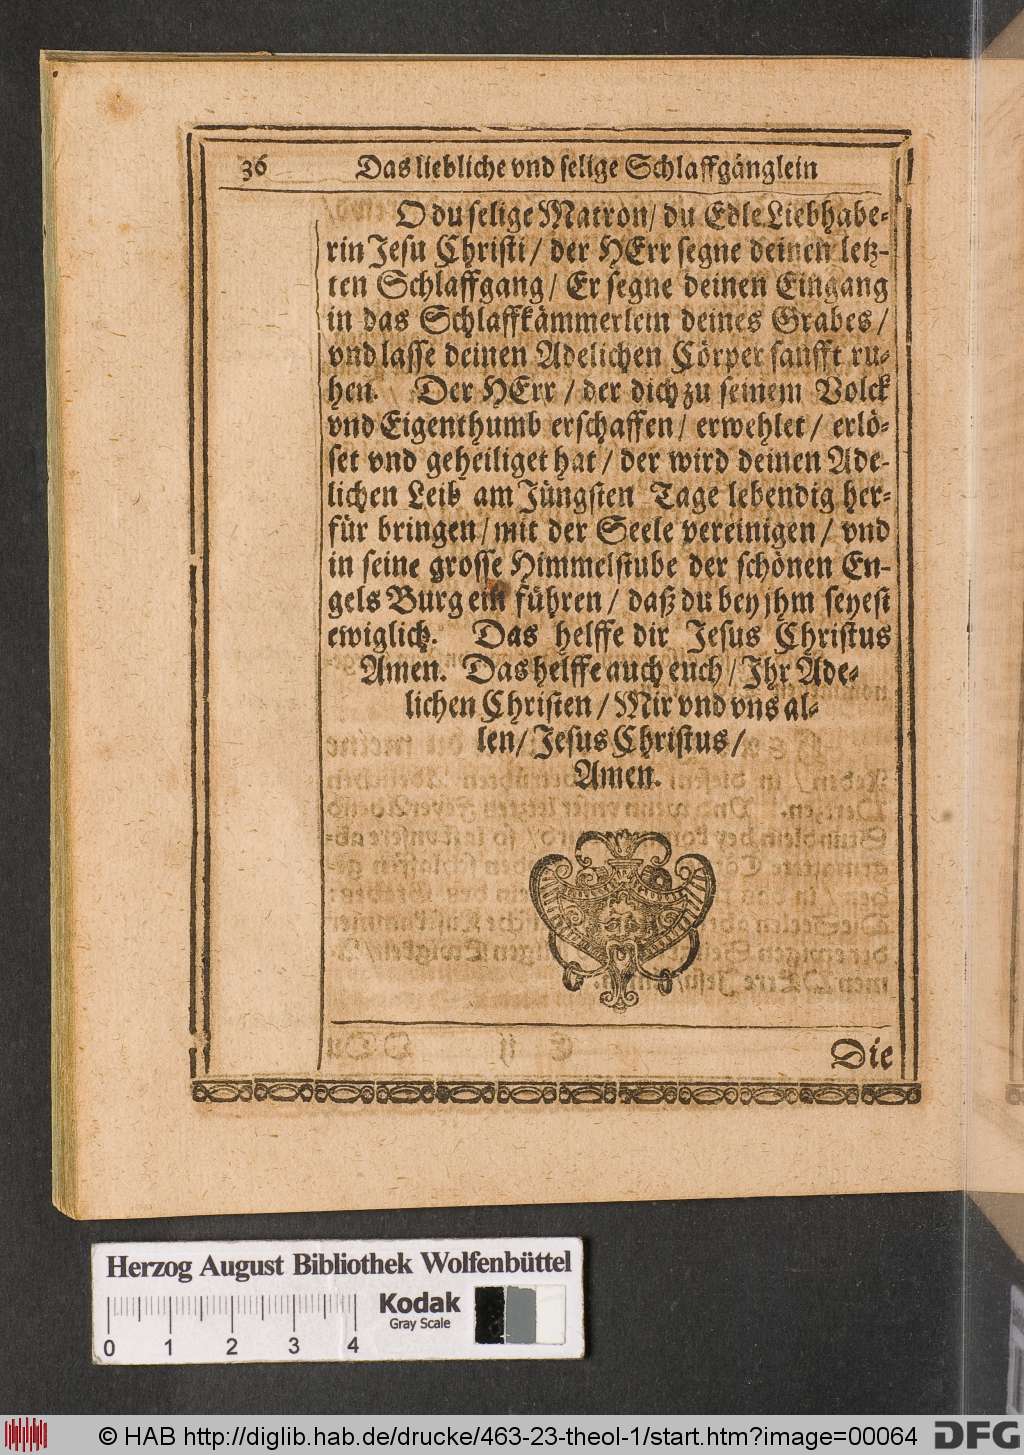 36 Das liebliche vnd selige Schlaffgänglein
O du selige Matron/ du Edle Liebhabe-
rin Jesu Christi/ der HErr segne deinen letz-
ten Schlaffgang/ Er segne deinen Eingang
in das Schlaffkämmerlein deines Grabes/
vnd lasse deinen Adelichen Cörper sanfft ru-
hen. Der HErr/ der dich zu seinem Volck
vnd Eigenthumb erschaffen/ erwehlet/ erlö-
set vnd geheiliget hat/ der wird deinen Ade-
lichen Leib am Jüngsten Tage lebendig her-
für bringen/ mit der Seele vereinigen/ vnd
in seine grosse Himmelstube der schönen En-
gels Burg ein führen/ daß du bey jhm seyest
ewiglich. Das helffe dir Jesus Christus
Amen. Das helffe auch euch/ Ihr Ade-
lichen Christen/ Mir vnd vns al-
len/ Jesus Christus/
Amen.
Die
Herzog August Bibliothek Wolfenbüttel
Kodak
Gray Scale
0 1 2 3 4
© HAB http://diglib.hab.de/drucke/463-23-theol-1/start.htm?image=00064
DFG